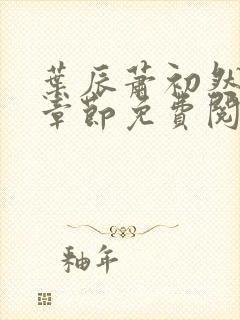 葉辰蕭初然
章節免費閱
釉年